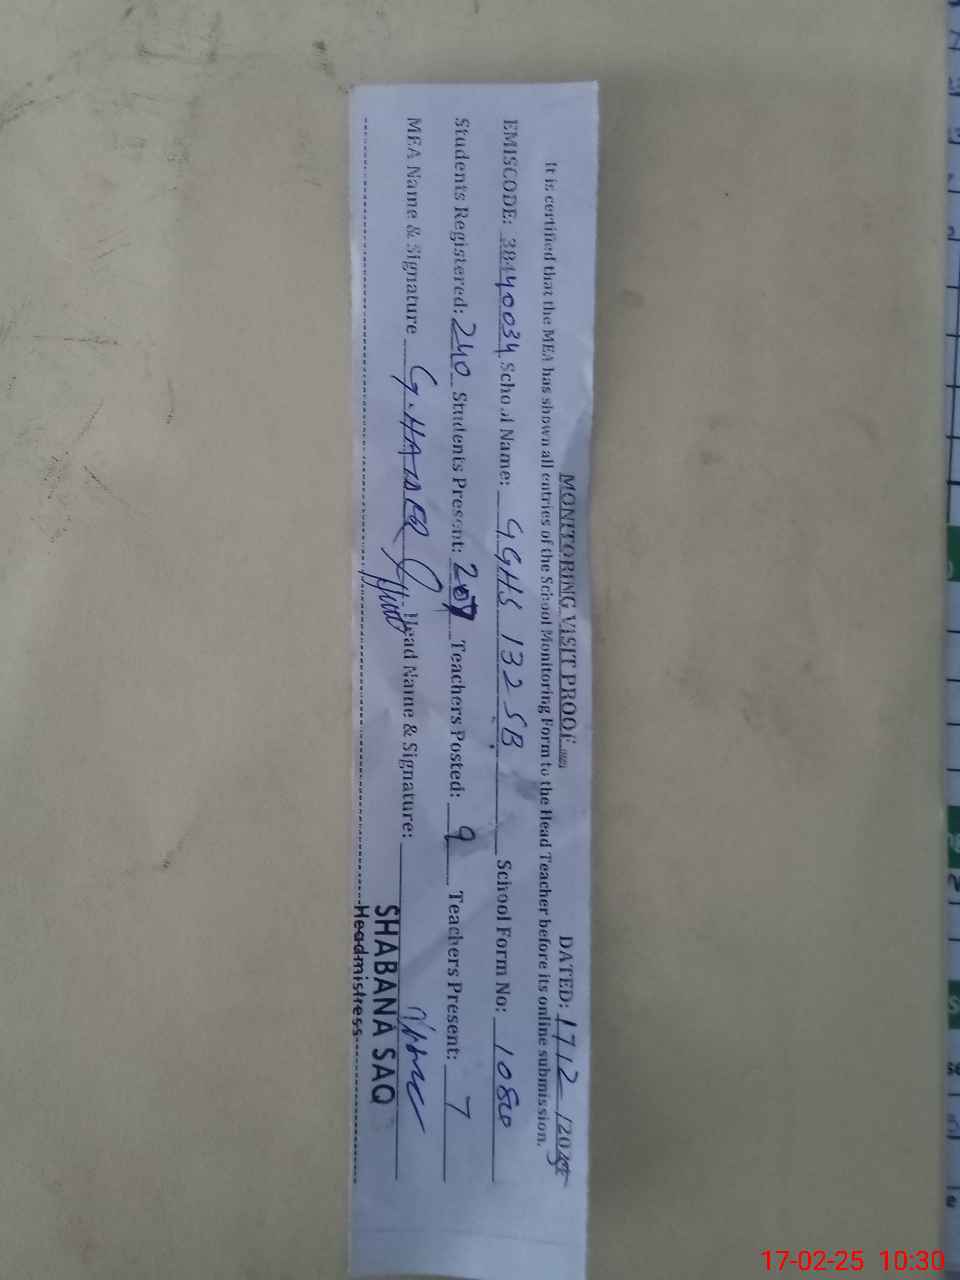 MONITORING VISIT PROOF
DATED: 17/2/2025
It is certified that the MEA has shown all entries of the School Monitoring Form to the Head Teacher before its online submission.
EMISCODE: 38440034 School Name: GGHS 132 SB School Form No: 1080
Students Registered: 240 Students Present: 207 Teachers Posted: 9 Teachers Present: 7
MEA Name & Signature G. HAIDER Head Name & Signature:
SHABANA SAQ
Headmistress
17-02-25 10:30